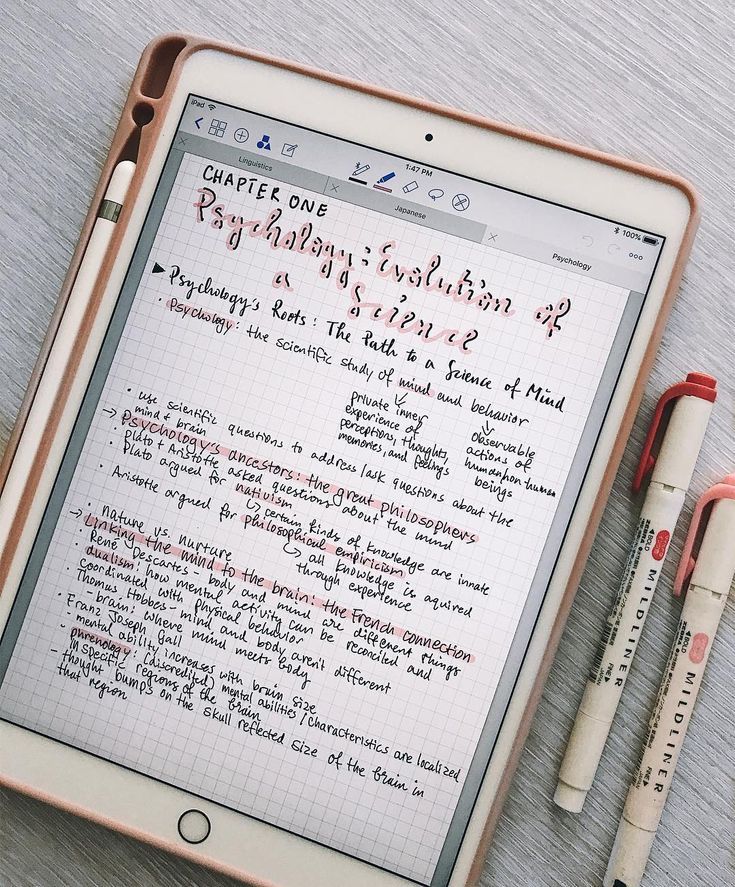 iPad
1:47 PM
100%
Linguistics
Japanese
Psychology
CHAPTER ONE
Psychology: Evolution of
a Science
Psychology's Roots: The Path to a Science of Mind
• Psychology: the scientific study of mind and behavior
private inner
experience of
perceptions, thoughts,
memories, and feelings
observable
actions of
human/non-human
beings
• use scientific questions to address/ask questions about the
mind & brain
→ Psychology's ancestors: the great philosophers
• Plato & Aristotle asked questions about the mind
• Plato argued for nativism
↳ certain kinds of knowledge are innate
• Aristotle argued for philosophical empiricism
↳ all knowledge is aquired
through experience
• nature vs. nurture
→ Linking the mind to the brain: the French connection
• René Descartes - body and mind are different things
• dualism: how mental activity can be reconciled and
coordinated with physical behavior
• Thomas Hobbes - mind and body aren't different
- brain: where mind meets body
• Franz Joseph Gall
- mental ability increases with brain size
- phrenology: (discredited) mental abilities/characteristics are localized
in specific regions of the brain
- thought bumps on the skull reflected size of the brain in
that region
BOLD
MILDLINER
FINE
BOLD
MILDLINER
FINE